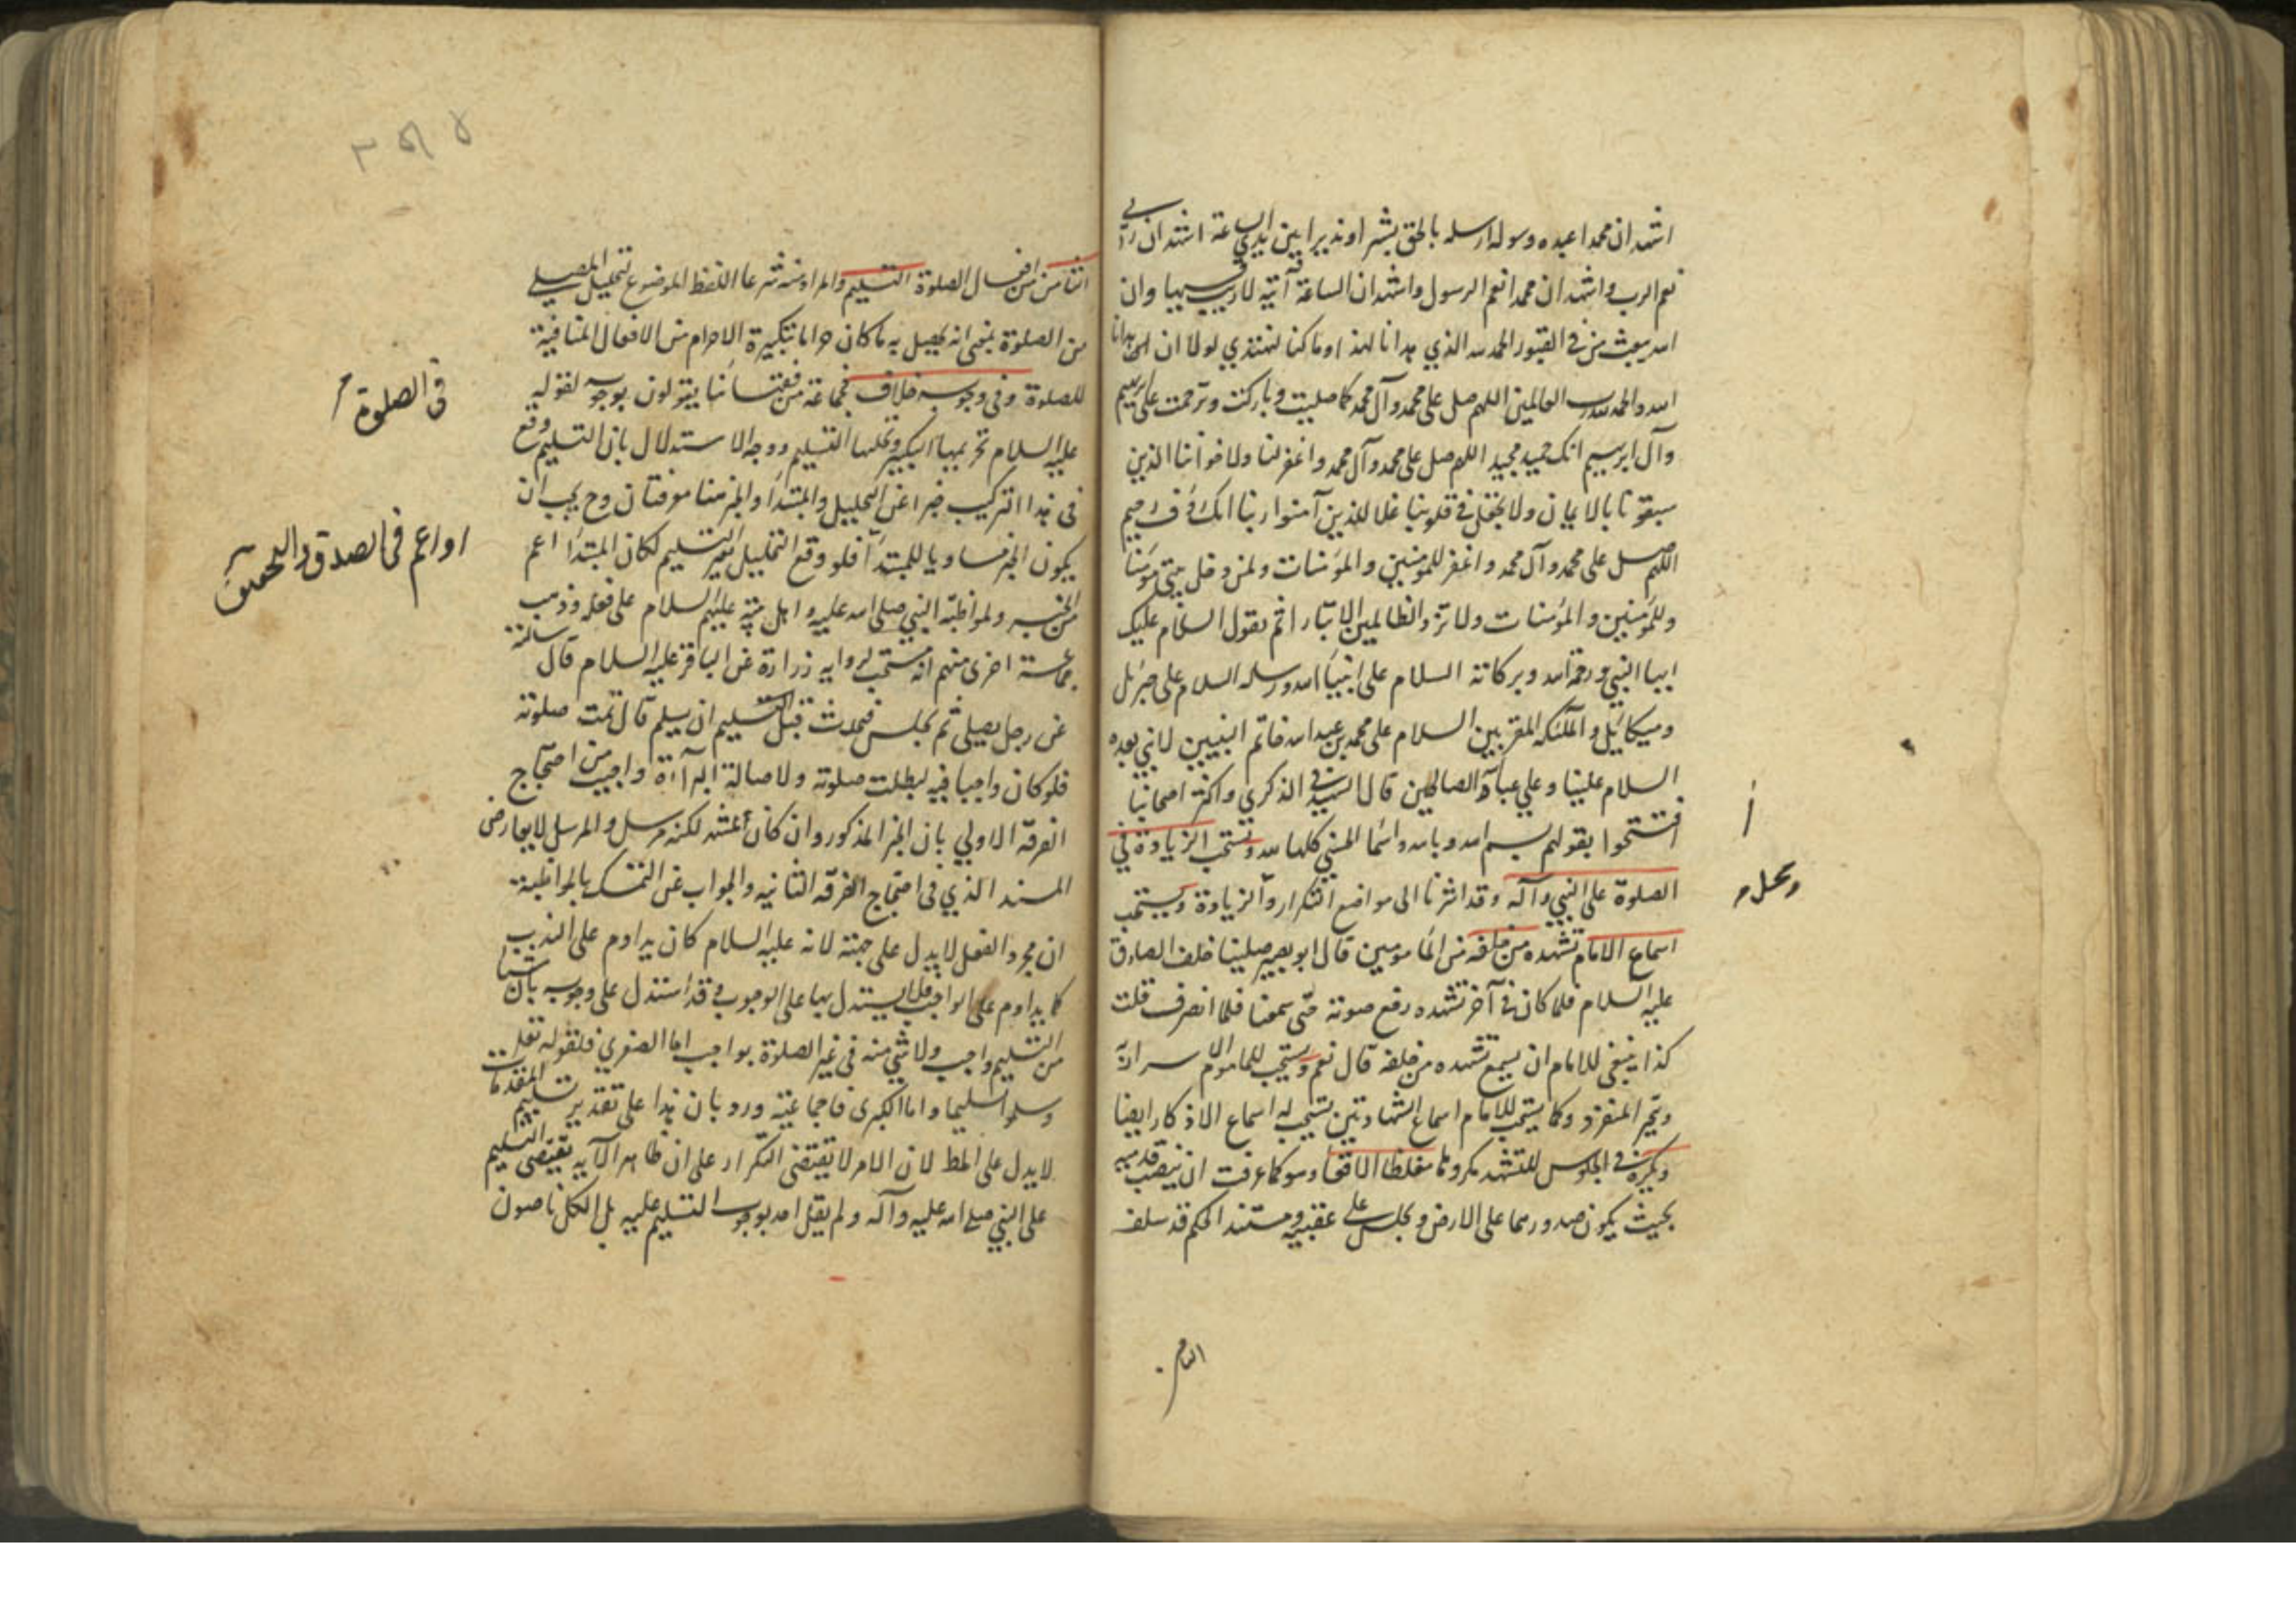 اشهد ان محمدا عبده ورسوله ارسله بالحق بشيرا ونذيرا بين يدي الساعة اشهد ان ربي
نعم الرب واشهد ان محمدا نعم الرسول واشهد ان الساعة آتية لا ريب فيها وان
الله يبعث من في القبور الحمد لله الذي هدانا لهذا وما كنا لنهتدي لولا ان هدانا
الله والحمد لله رب العالمين اللهم صل على محمد وآل محمد كما صليت وباركت وترحمت على ابرهيم
وآل ابرهيم انك حميد مجيد اللهم صل على محمد وآل محمد واغفر لنا ولاخواننا الذين
سبقونا بالايمان ولا تجعل في قلوبنا غلا للذين آمنوا ربنا انك رؤف رحيم
اللهم صل على محمد وآل محمد واغفر للمؤمنين والمؤمنات ولمن دخل بيتي مؤمنا
وللمؤمنين والمؤمنات ولا تزد الظالمين الا تبارا ثم يقول السلام عليك
ايها النبي ورحمة الله وبركاته السلام على انبياء الله ورسله السلام على جبرئيل
وميكائيل والملئكة المقربين السلام على محمد بن عبد الله خاتم النبيين لا نبي بعده
السلام علينا وعلى عباد الله الصالحين قال الشهيد في الذكرى واكثر اصحابنا
افتتحوا بقولهم بسم الله وبالله واسماء الحسنى كلها لله وتستحب الزيادة في
الصلوة على النبي وآله وقد اشرنا الى مواضع التكرار والزيادة ويستحب
اسماع الامام تشهده من خلفه من المأمومين قال ابو بصير صلينا خلف الصادق
عليه السلام فلما كان في آخر تشهده رفع صوته حتى سمعنا فلما انصرف قلت
كذا ينبغي للامام ان يسمع تشهده من خلفه قال نعم ويستحب للماموم الاسرار به
ويخير المنفرد وكما يستحب للامام اسماع الشهادتين يستحب له اسماع الاذكار ايضا
ويكره في الجلوس للتشهد مكروها مغلظا الاقعاء وهو كما عرفت ان ينصب قدميه
بحيث يكون صدورهما على الارض ويجلس على عقبيه ومستند الحكم قد سلف
الثامن
الثامن من افعال الصلوة التسليم والمراد منه شرعا اللفظ الموضوع لتحليل المصلي
من الصلوة بمعنى انه يحصل به ما كان حراما بتكبيرة الاحرام من الافعال المنافية
للصلوة وفي وجوبه خلاف فجماعة من فقهائنا يقولون بوجوبه لقوله
في الصلوة
عليه السلام تحريمها التكبير وتحليلها التسليم ووجه الاستدلال بان التسليم وقع
في هذا التركيب خبرا عن التحليل والمبتدا والخبر هنا معرفتان وح يجب ان
يكون الخبر مساويا للمبتدا فلو وقع التحليل بغير التسليم لكان المبتدا اعم
او اعم في الصدق
من الخبر ولمواظبة النبي صلى الله عليه واهل بيته عليهم السلام على فعله وذهب
جماعة اخرى منهم انه مستحب لرواية زرارة عن الباقر عليه السلام قال سالته
عن رجل يصلي ثم يجلس فيحدث قبل ان يسلم قال تمت صلوته
فلو كان واجبا فيه لبطلت صلوته ولاصالة البراءة واجيب من احتجاج
الفرقة الاولى بان الخبر المذكور وان كان اشهر لكنه مرسل والمرسل لا يعارض
المسند الذي في احتجاج الفرقة الثانية والجواب عن التمسك بالمواظبة
ان مجرد الفعل لا يدل على حجته لانه عليه السلام كان يداوم على الندب
كما يداوم على الواجب فلا يستدل بها على الوجوب وقد استدل على وجوبه بان شيئا
من التسليم واجب ولا شئ منه في غير الصلوة بواجب اما الصغرى فلقوله تعالى
وسلموا تسليما واما الكبرى فاجماعية ورد بان هذا على تقدير تسليم المقدمات
لا يدل على المط لان الامر لا يقتضى التكرار على ان ظاهر الآية يقتضى التسليم
على النبي صلى الله عليه وآله ولم يقل احد بوجوب التسليم عليه بل الكل ناصون